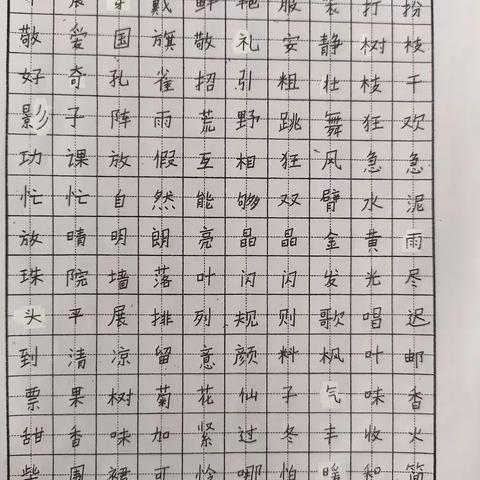 戴鲜艳服装打扮
敬爱国旗敬礼安静树枝
好奇孔雀招引粗壮枝干
影子阵雨荒野跳舞狂欢
功课放假互相狂风急急
忙忙自然能够双臂水泥
放晴明朗亮晶晶金黄雨
珠院墙落叶闪闪发光尽
头平展排列规则歌唱迟
到清凉留意颜料枫叶邮
票果树菊花仙子气味香
甜香味加紧过冬丰收火
柴围裙可怜哪怕暖和简